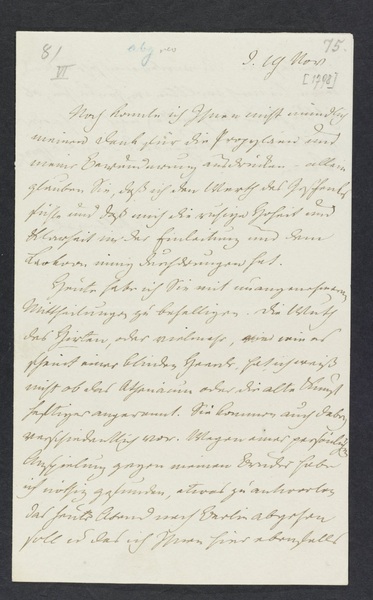 81
VI
abges
75.
d. 19 Nov
[1798]
Noch konnte ich Ihnen nicht mündlich
meinen Dank für die Propyläen und
meine Bewunderung ausdrücken – allein
glauben Sie, daß ich den Werth des Geschenks
fühle und daß mich die ruhige Hoheit und
Klarheit in der Einleitung und dem
Laokoon innig durchdrungen hat.
Heute habe ich Sie mit unangenehmeren
Mittheilungen zu behelligen. Die Wuth
des Hirten, oder vielmehr, wie es
scheint einer blinden Heerde, hat ich weiß
nicht ob das Athenäum oder die alte Kunst
heftiger angerannt. Sie kommen auch dabey
verschiedentlich vor. Wegen einer persönlichen
Anspielung gegen meinen Bruder habe
ich nöthig gefunden, etwas zu antworten
das heute Abend nach Berlin abgehen
soll u das ich Ihnen hier ebenfalls